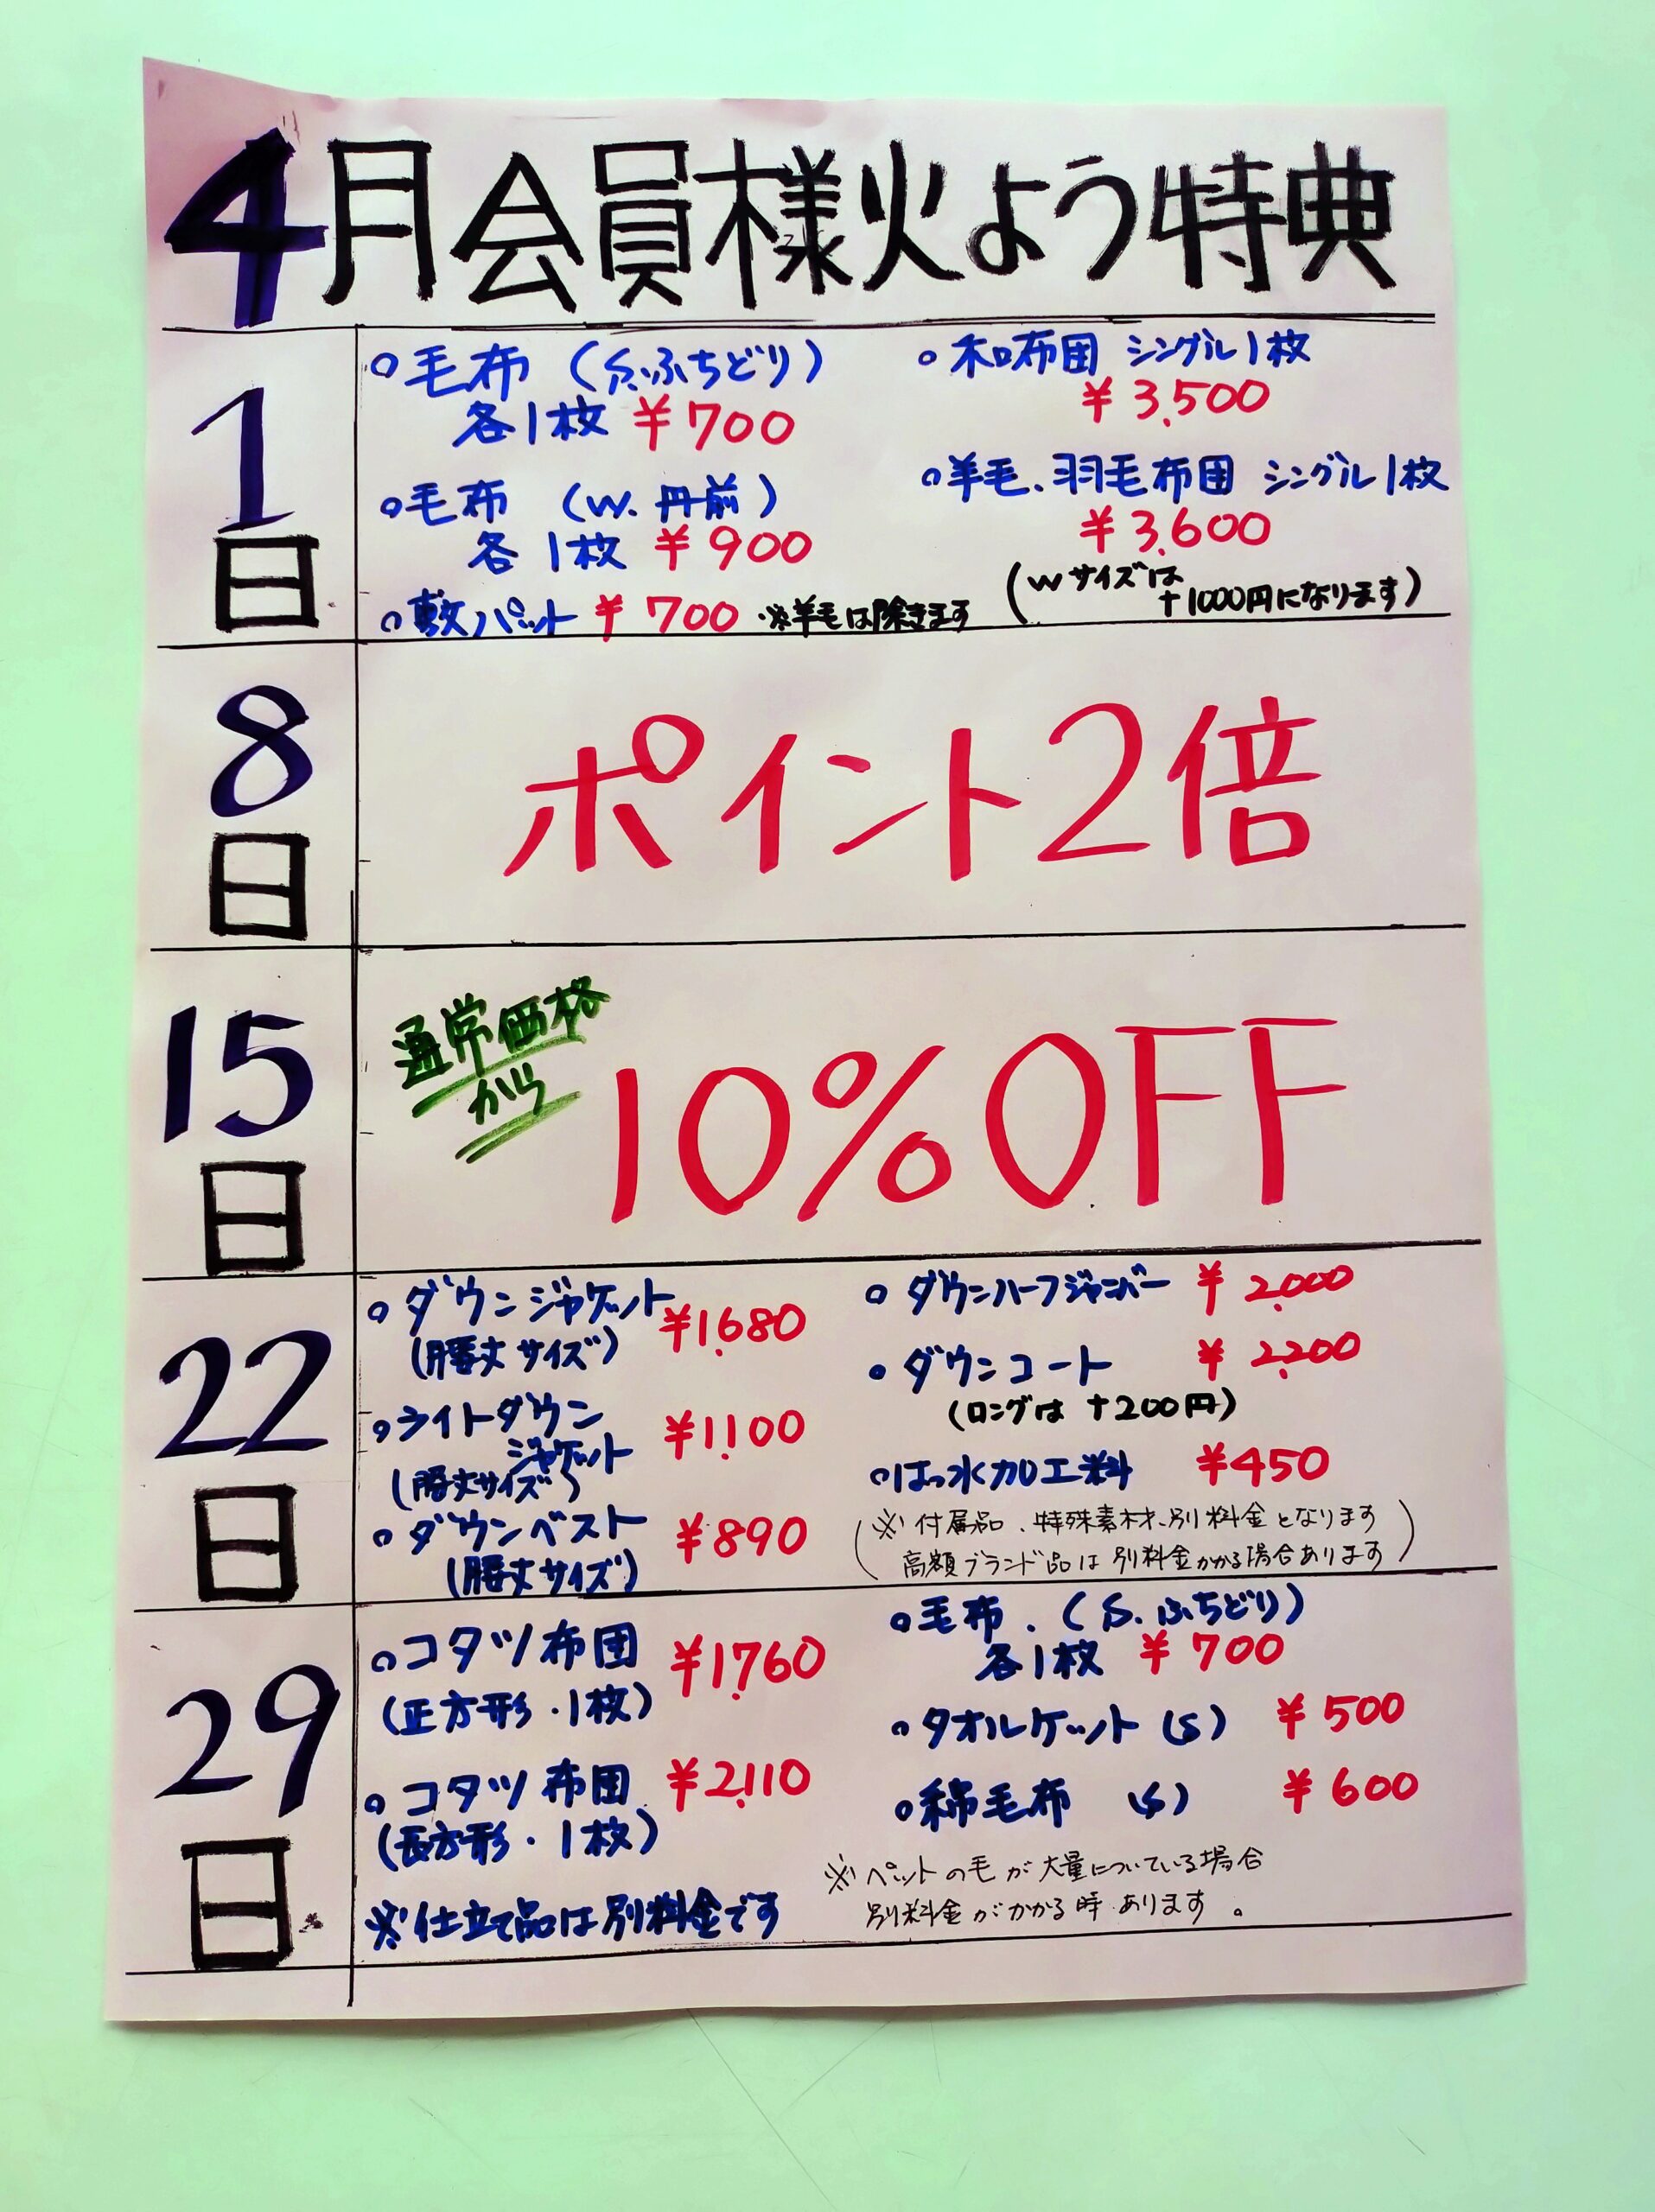 4月会員様火よう特典
1日
○毛布(S.ふちどり)
各1枚 ¥700
○毛布 (W.丹前)
各1枚 ¥900
○敷パット ¥700 ※羊毛は除きます
○和布団 シングル1枚
¥3,500
○羊毛、羽毛布団 シングル1枚
¥3,600
(Wサイズは
+1000円になります)
8日
ポイント2倍
15日
通常価格
から
10%OFF
22日
○ダウンジャケット ¥1,680
(腰丈サイズ)
○ライトダウン
ジャケット ¥1,100
(腰丈サイズ)
○ダウンベスト ¥890
(腰丈サイズ)
○ダウンハーフジャンバー ¥2,000
○ダウンコート ¥2,200
(ロングは +200円)
○はっ水加工料 ¥450
(※付属品、特殊素材、別料金となります
高額ブランド品は別料金かかる場合あります)
29日
○コタツ布団 ¥1,760
(正方形・1枚)
○コタツ布団 ¥2,110
(長方形・1枚)
※仕立て品は別料金です
○毛布.(S.ふちどり)
各1枚 ¥700
○タオルケット(S) ¥500
○綿毛布 (S) ¥600
※ペットの毛が大量についている場合
別料金がかかる時あります。